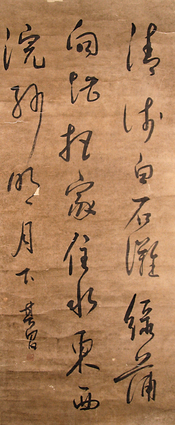 清淺白石灘綠蒲
向堪把家住水東西
浣紗明月下其昌